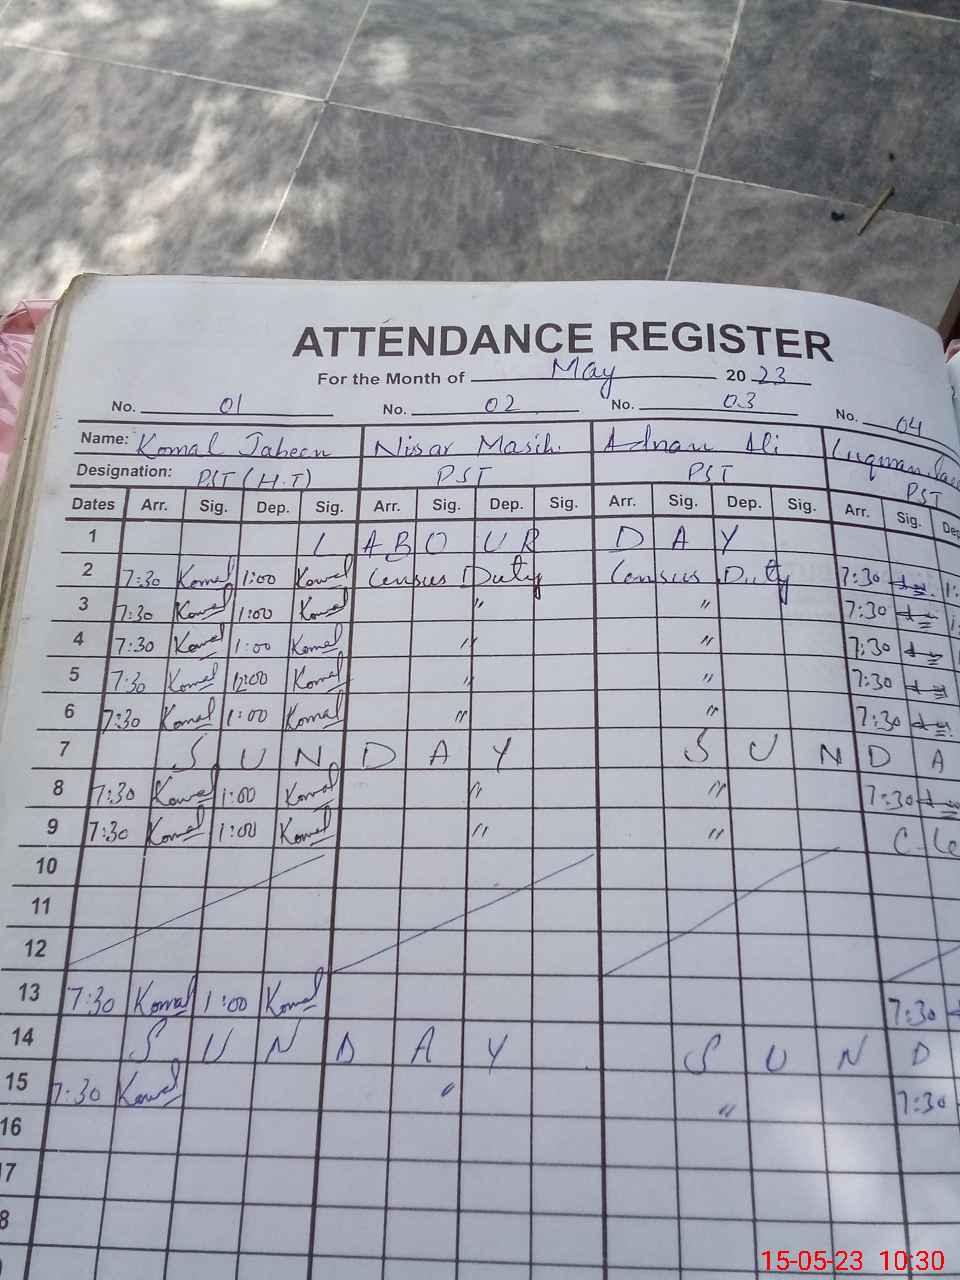 ATTENDANCE REGISTER
For the Month of May 2023
No. 01 No. 02 No. 03 No. 04
Name: Komal Jabeen Nisar Masih Adnan Ali Luqman
Designation: PST (H.T) PST PST PST
Dates Arr. Sig. Dep. Sig. Arr. Sig. Dep. Sig. Arr. Sig. Dep. Sig. Arr. Sig. De
1 LABOUR DAY
2 7:30 Komal 1:00 Komal Census Duty Census Duty 7:30 1:
3 7:30 Komal 1:00 Komal " " 7:30 1:
4 7:30 Komal 1:00 Komal " " 7:30
5 7:30 Komal 12:00 Komal " " 7:30
6 7:30 Komal 1:00 Komal " " 7:30
7 SUNDAY SUNDA
8 7:30 Komal 1:00 Komal " " 7:30
9 7:30 Komal 1:00 Komal " " C-Le
10
11
12
13 7:30 Komal 1:00 Komal 7:30
14 SUNDAY SUND
15 7:30 Komal " " 7:30
16
17
8
15-05-23 10:30